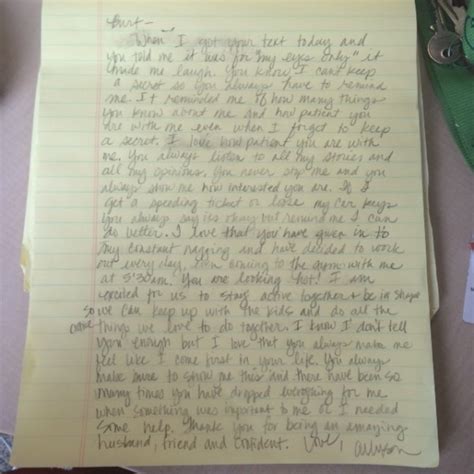 Burt-
When I got your text today and
you told me it was for "my eyes only" it
made me laugh. You know I cant keep
a secret so you always have to remind
me. It reminded me of how many things
you know about me and how patient you
are with me even when I forget to keep
a secret. I love how patient you are with
me. You always listen to all my stories and
all my opinions. You never stop me and you
always show me how interested you are. If I
get a speeding ticket or loose my car keys
you always say its okay but remind me I can
do better. I love that you have given in to
my constant nagging and have decided to work
out every day, even coming to the gym with me
at 5:30am. You are looking hot! I am
excited for us to stay active together & be in shape
so we can keep up with the kids and do all the
things we love to do together. I know I don't tell
you enough but I love that you always make me
feel like I come first in your life. You always
make sure to show me this and there have been so
many times you have dropped everything for me
when something was important to me or I needed
some help. Thank you for being an amazing
husband, friend and confident. Love, Allyson